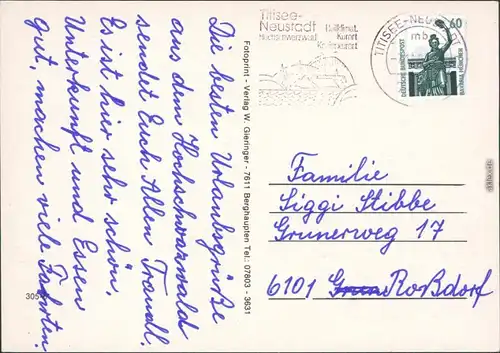 Die besten Urlaubsgrüße
aus dem Hochschwarzwald
sendet Euch Allen Traudl.
Es ist hier sehr schön,
Unterkunft und Essen
gut, machen viele Fahrten.
305
Fotoprint - Verlag W. Gieringer - 7611 Berghaupten Tel.: 07803 - 3631
Titisee-
Neustadt
Hochschwarzwald
Heilklimat.
Kurort
Kneippkurort
TITISEE-NEUSTADT
mb
60
DEUTSCHE BUNDESPOST
Familie
Siggi Stibbe
Grunerweg 17
6101 Roßdorf